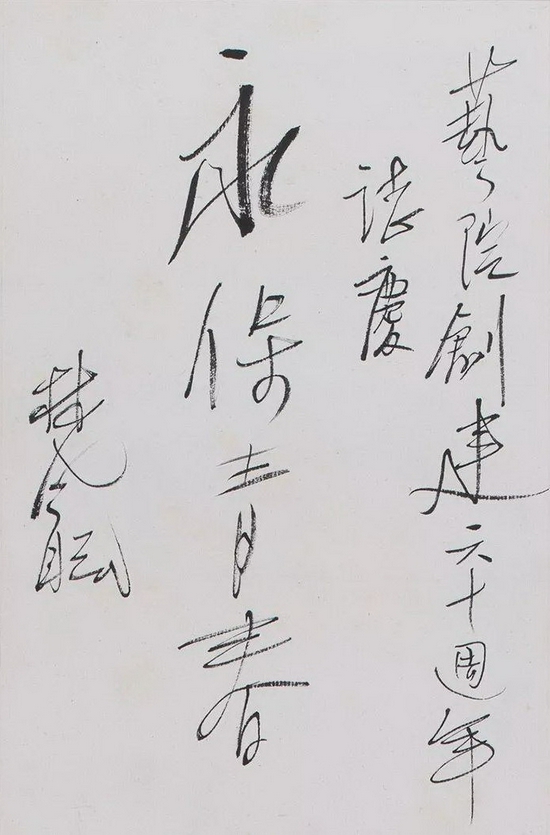 藝院創建六十週年
誌慶
永保青春
林風眠